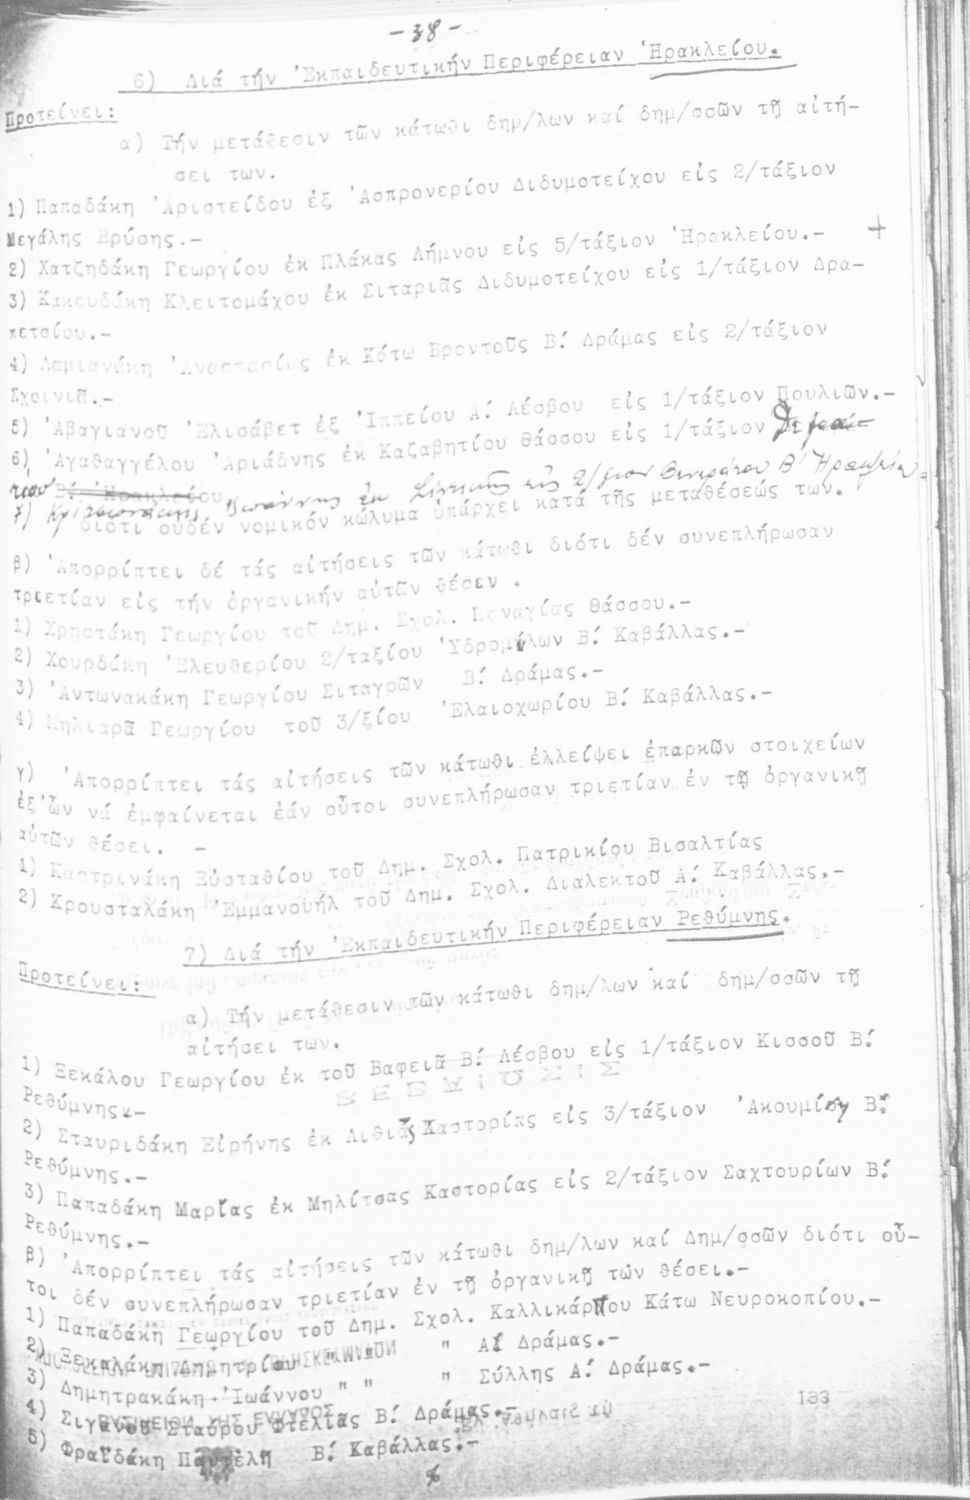 -38-
6) Διά τήν 'Εκπαιδευτικήν Περιφέρειαν 'Ηρακλείου.
Προτείνει:
α) Τήν μετάθεσιν τῶν κάτωθι δημ/λων καί δημ/σσῶν τῇ αἰτή-
σει των.
1) Παπαδάκη 'Αριστείδου ἐξ 'Ασπρονερίου Διδυμοτείχου εἰς 2/τάξιον
Μεγάλης Βρύσης.-
2) Χατζηδάκη Γεωργίου ἐκ Πλάκας Λήμνου εἰς 5/τάξιον 'Ηρακλείου.- +
3) Κακουδάκη Κλειτομάχου ἐκ Σιταριᾶς Διδυμοτείχου εἰς 1/τάξιον Δρα-
κετσίου.-
4) Δαμιανάκη 'Αναστασίας ἐκ Κάτω Βροντοῦς Β΄. Δράμας εἰς 2/τάξιον
Σχοινιᾶ.-
5) 'Αβαγιανοῦ 'Ελισάβετ ἐξ 'Ιππείου Α΄. Λέσβου εἰς 1/τάξιον Πουλιῶν.-
6) 'Αγαθαγγέλου 'Αριάδνης ἐκ Καζαβητίου Θάσσου εἰς 1/τάξιον
Β΄. 'Ηρακλείου
7) Ἰωάννης ἐκ εἰς 2/ξιον Β΄ Ἡρακλείου.
διότι οὐδέν νομικόν κώλυμα ὑπάρχει κατά τῆς μεταθέσεώς των.
β) 'Απορρίπτει δέ τάς αἰτήσεις τῶν κάτωθι διότι δέν συνεπλήρωσαν
τριετίαν εἰς τήν ὀργανικήν αὐτῶν θέσιν .
1) Χρηστάκη Γεωργίου τοῦ Δημ. Σχολ. Παναγίας Θάσσου.-
2) Χουρδάκη 'Ελευθερίου 2/ταξίου 'Υδρομύλων Β΄. Καβάλλας.-
3) 'Αντωνακάκη Γεωργίου Σιταγρῶν Β΄. Δράμας.-
4) Μηλιαρᾶ Γεωργίου τοῦ 3/ξίου 'Ελαιοχωρίου Β΄. Καβάλλας.-
γ) 'Απορρίπτει τάς αἰτήσεις τῶν κάτωθι ἐλλείψει ἐπαρκῶν στοιχείων
ἐξ'ὧν νά ἐμφαίνεται ἐάν οὗτοι συνεπλήρωσαν τριετίαν ἐν τῇ ὀργανικῇ
αὐτῶν θέσει. -
1) Καστρινάκη Εὐσταθίου τοῦ Δημ. Σχολ. Πατρικίου Βισαλτίας
2) Κρουσταλάκη 'Εμμανουήλ τοῦ Δημ. Σχολ. Διαλεκτοῦ Α΄. Καβάλλας.-
7) Διά τήν 'Εκπαιδευτικήν Περιφέρειαν Ρεθύμνης.
Προτείνει:
α) Τήν μετάθεσιν τῶν κάτωθι δημ/λων καί δημ/σσῶν τῇ
αἰτήσει των.
1) Ξεκάλου Γεωργίου ἐκ τοῦ Βαφειᾶ Β΄. Λέσβου εἰς 1/τάξιον Κισσοῦ Β΄.
Ρεθύμνης.-
2) Σταυριδάκη Εἰρήνης ἐκ Λιθιᾶς Καστορίας εἰς 3/τάξιον 'Ακουμίων Β΄.
Ρεθύμνης.-
3) Παπαδάκη Μαρίας ἐκ Μηλίτσας Καστορίας εἰς 2/τάξιον Σαχτουρίων Β΄.
Ρεθύμνης.-
β) 'Απορρίπτει τάς αἰτήσεις τῶν κάτωθι δημ/λων καί Δημ/σσῶν διότι οὗ-
τοι δέν συνεπλήρωσαν τριετίαν ἐν τῇ ὀργανικῇ των θέσει.-
1) Παπαδάκη Γεωργίου τοῦ Δημ. Σχολ. Καλλικάρπου Κάτω Νευροκοπίου.-
2) Ξεκαλάκη Δημητρίου " " " Α΄. Δράμας.-
3) Δημητρακάκη 'Ιωάννου " " " Σύλλης Α΄. Δράμας.-
4) Σιγανοῦ Σταύρου Φτελιᾶς Β΄. Δράμας.-
5) Φραϊδάκη Παντελῆ Β΄. Καβάλλας.-